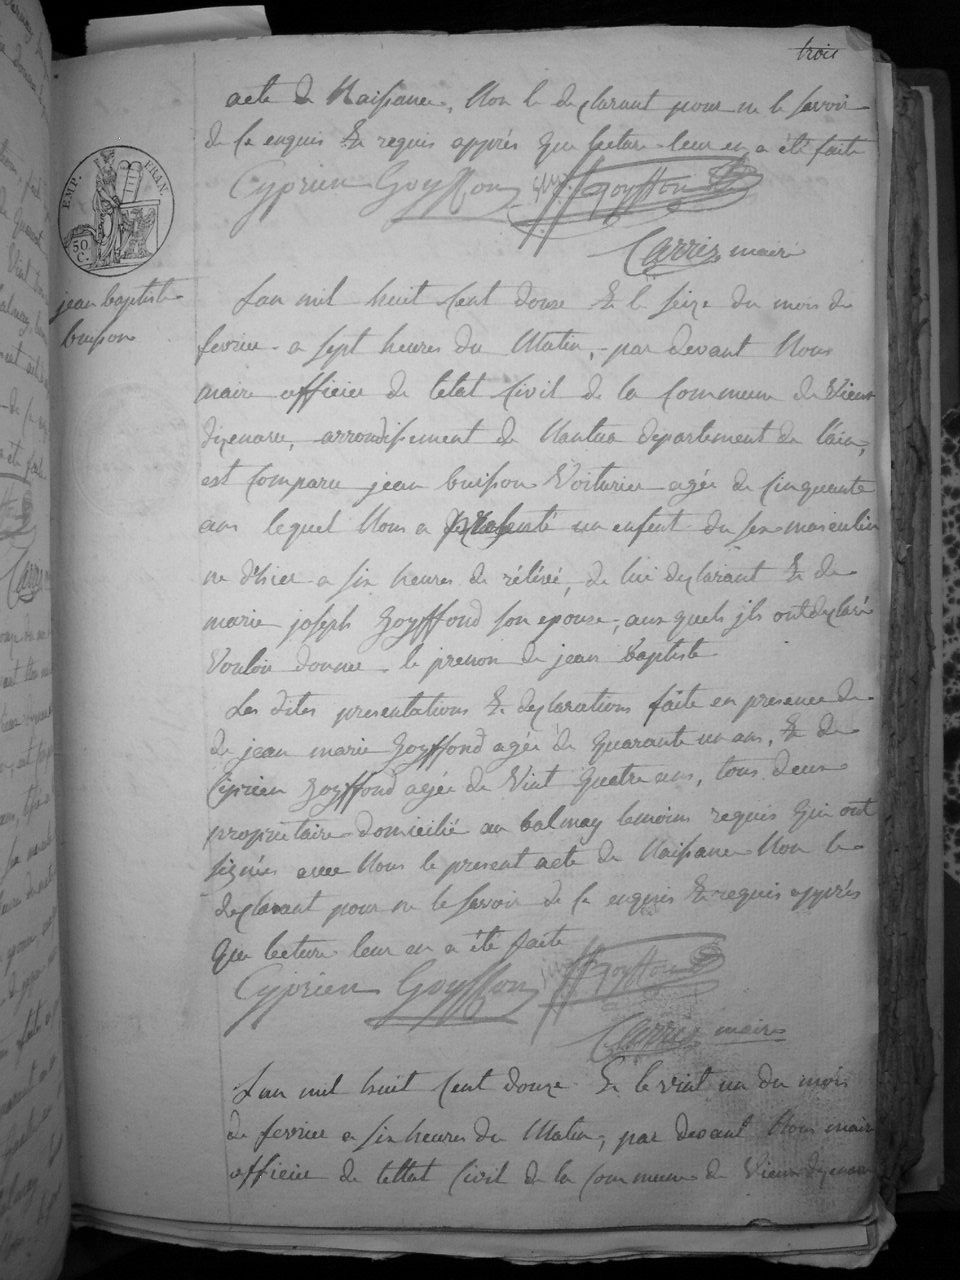 trois
acte de Naissance, Non le declarant pour ne le savoir
de ce enquis & requis apprés que lecture leur en a été faite
Cyprien Goyffon Goyffon
Carrier maire
EMP. FRAN.
50 C.
jean baptiste
buisson
Lan mil huit Cent douze & le seize du mois de
fevrier a sept heures du Matin, par devant Nous
maire officier de letat Civil de la Commune de Vieux
dizenave, arrondissement de Nantua departement de l'ain,
est Comparu jean buisson Voiturier agée de Cinquante
ans lequel Nous a presenté un enfent du sex masculin
ne d'hier a six heures de rélévé, de lui declarant & de
marie joseph Goyffond son epouse, aux quels jls ont declaré
Vouloir donner le prenon de jean baptiste
Les dites presentations & declarations faite en presence de
de jean marie Goyffond agée de quarante un ans, & de
Ciprien Goyffond agée de Vint quatre ans, tous deux
proprietaire domicilié au balmay temoins requis qui ont
signés avec Nous le present acte de Naissance Non le
declarant pour ne le savoir de ce enquis & requis apprés
que lecture leur en a été faite
Cyprien Goyffon Goyffon
Carrier maire
Lan mil huit Cent douze & le vint un du mois
de fevrier a six heures du Matin, par devant Nous maire
officier de lettat Civil de la Commune de Vieux dizenave